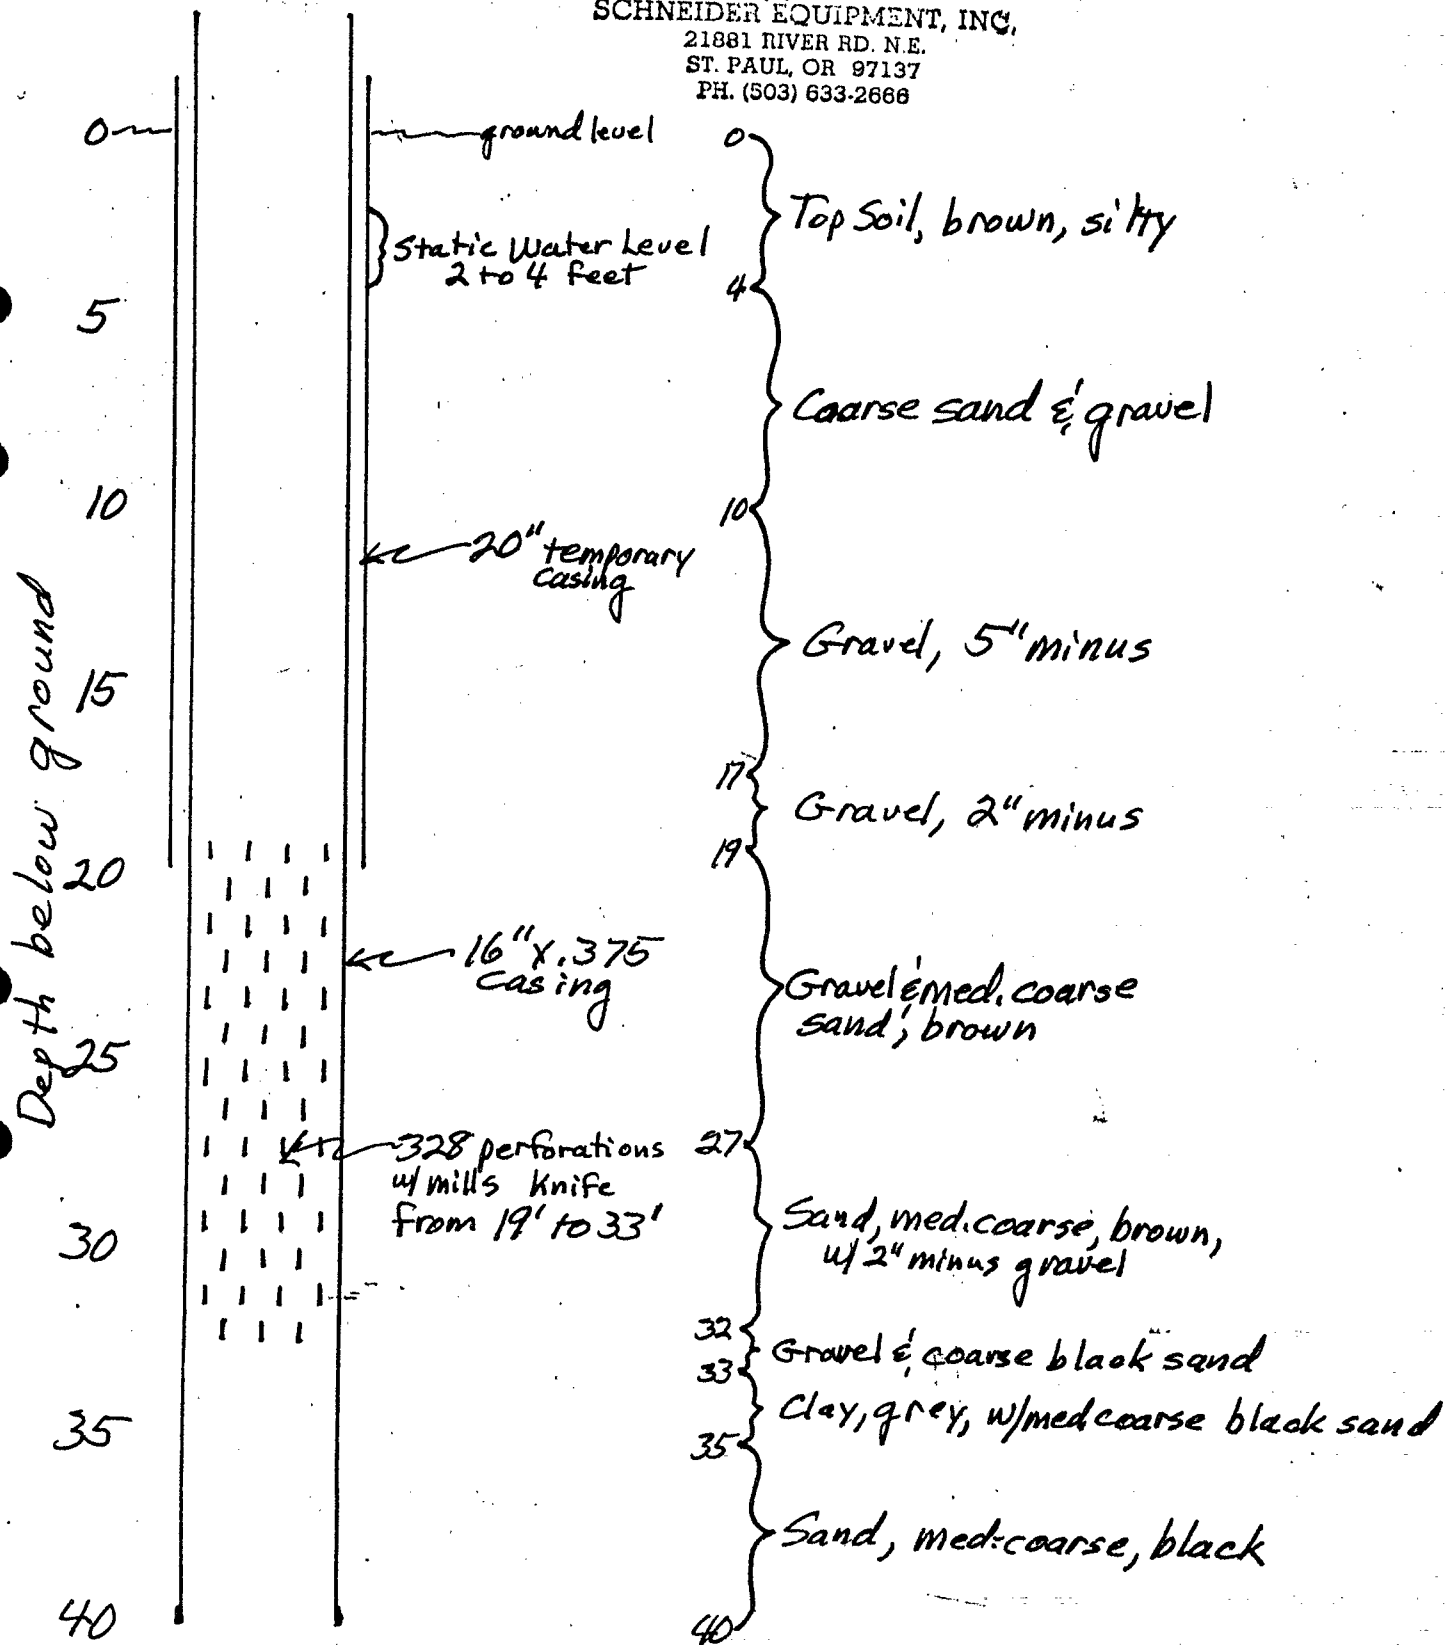 SCHNEIDER EQUIPMENT, INC.
21881 RIVER RD. N.E.
ST. PAUL, OR 97137
PH. (503) 633-2666
0
ground level
Static Water Level
2 to 4 feet
5
10
20" temporary
casing
15
20
16" x .375
casing
25
328 perforations
w/ mills knife
from 19' to 33'
30
35
40
Depth below ground
0
Top Soil, brown, silty
4
Coarse sand & gravel
10
Gravel, 5" minus
17
Gravel, 2" minus
19
Gravel & med. coarse
sand, brown
27
Sand, med. coarse, brown,
w/ 2" minus gravel
32
Gravel & coarse black sand
33
Clay, grey, w/med coarse black sand
35
Sand, med-coarse, black
40